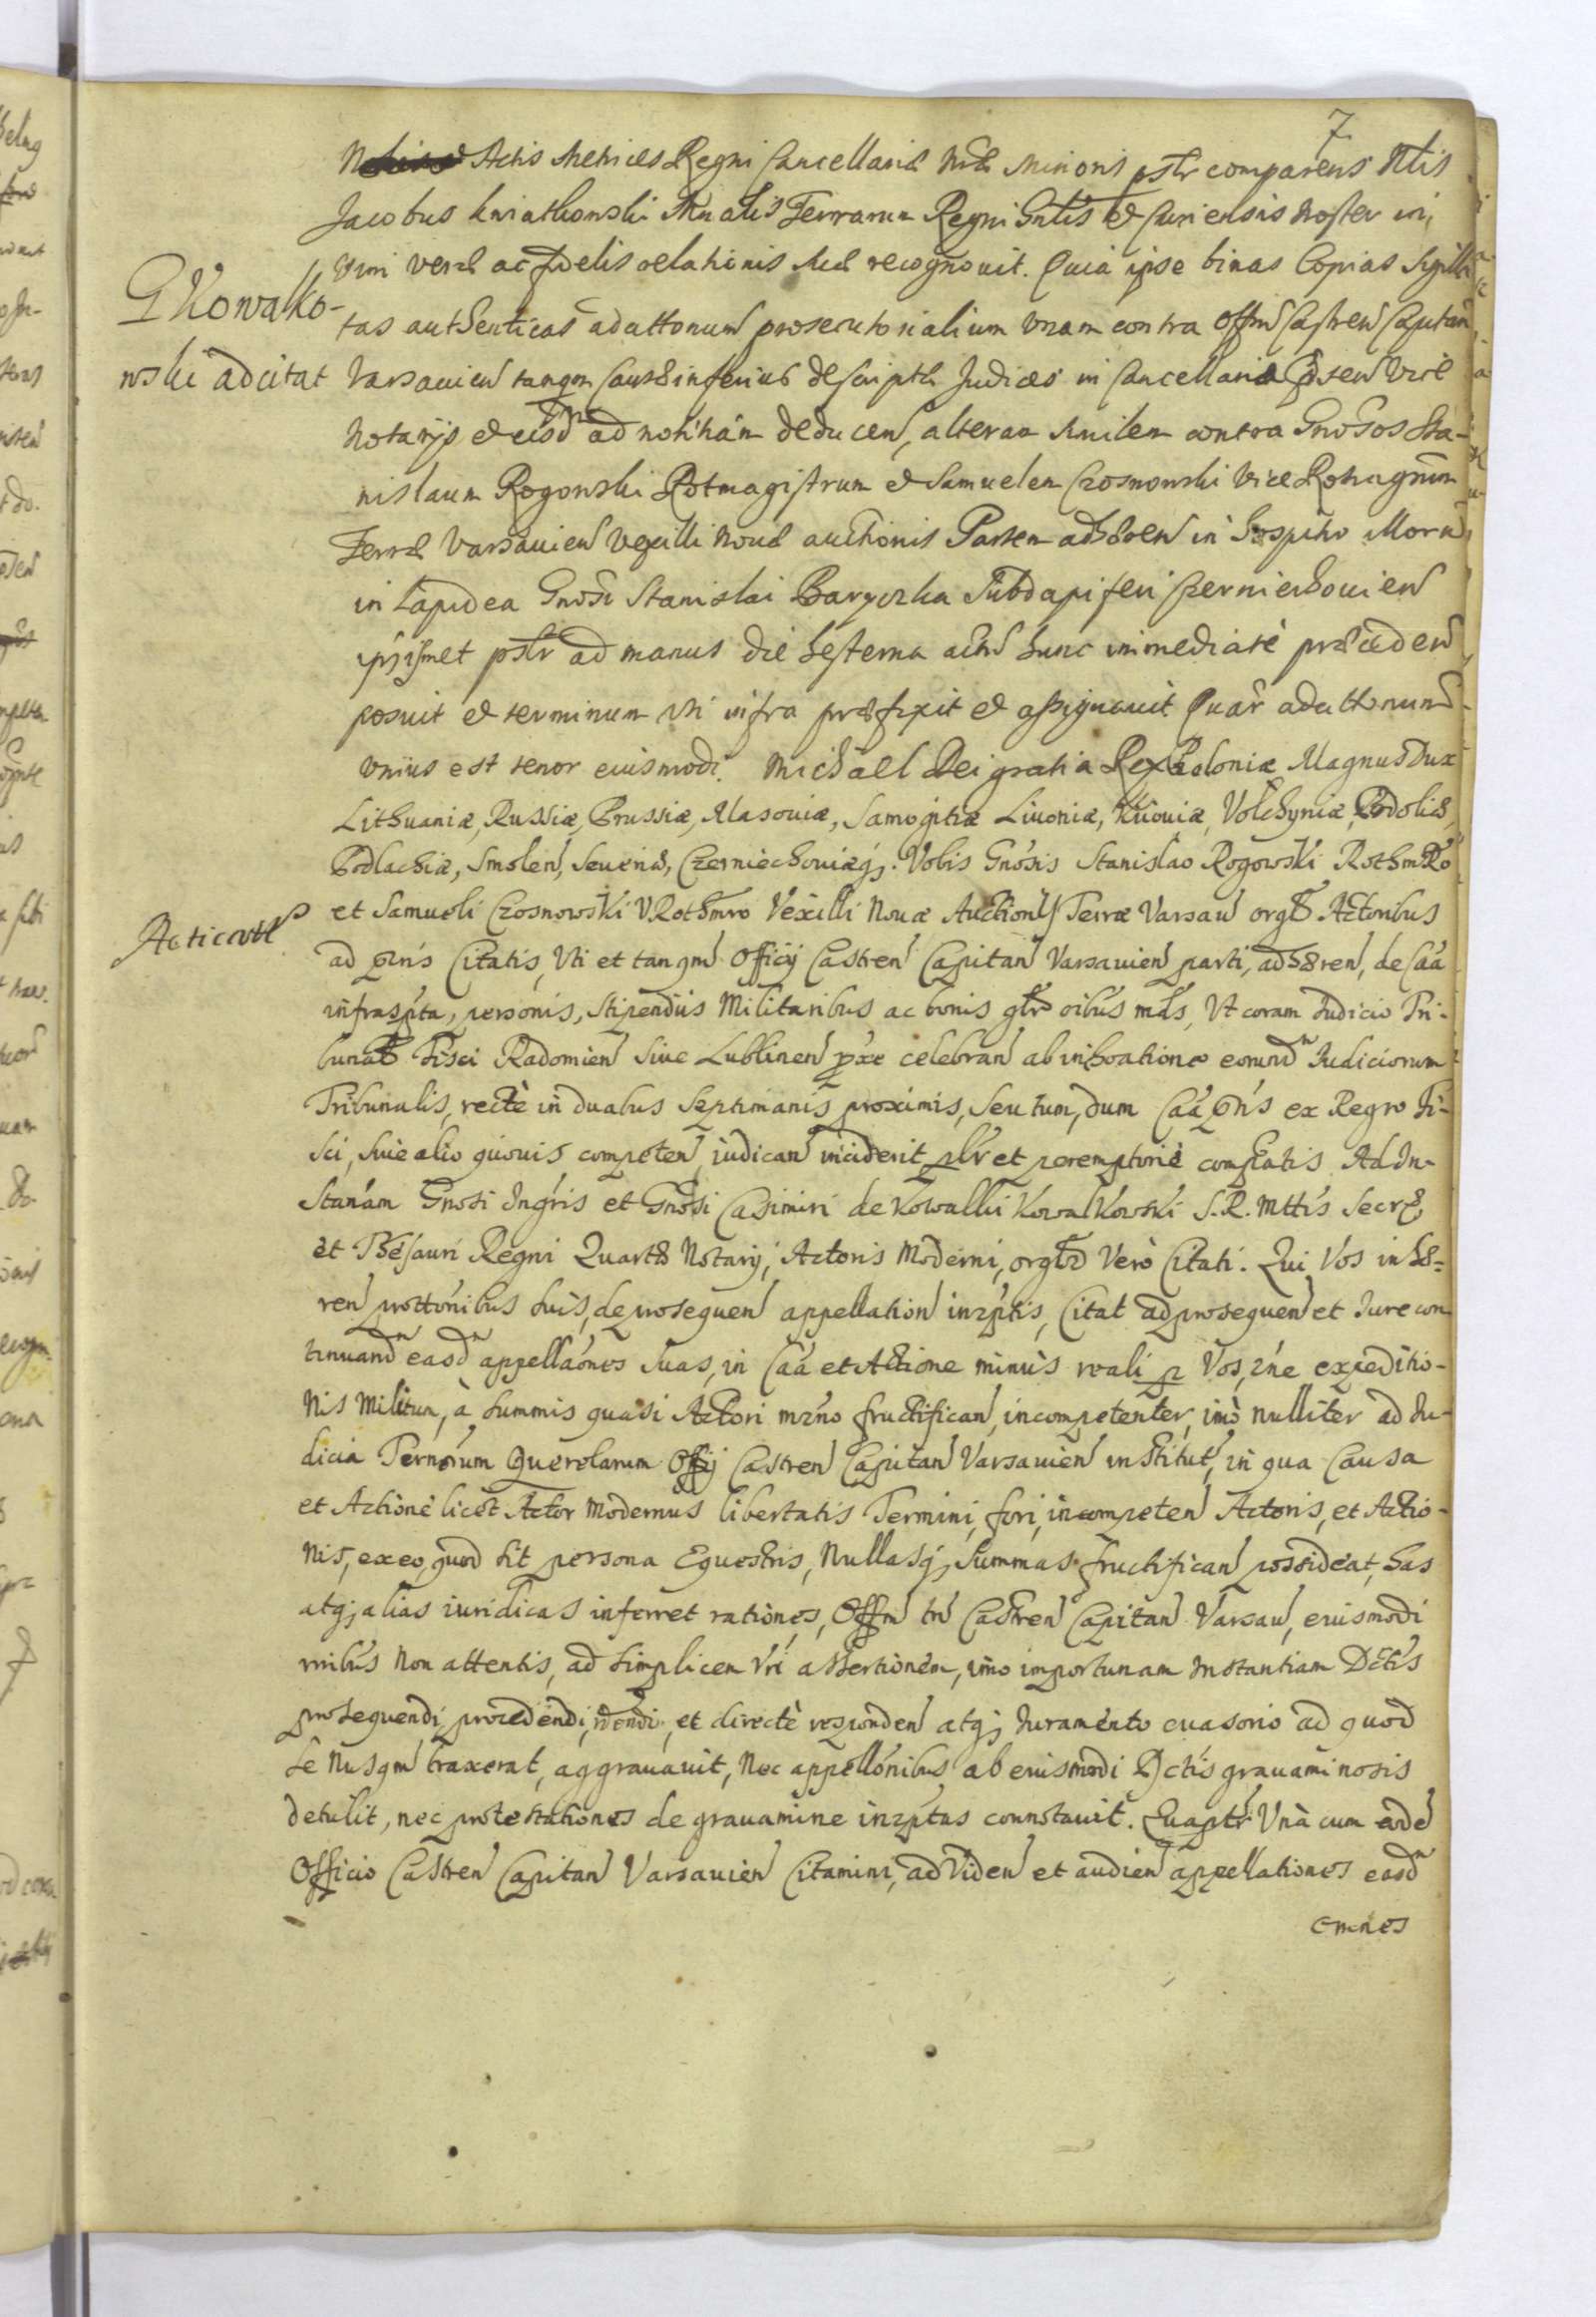 7
Actis Metrices Regni Cancellariæ Minoris pslr comparens Nlis
Jacobus Kwiatkowski Mnalis Terrarum Regni Gnlis et Curiensis noster in
vim veræ ac fidelis relationis suæ recognovit. Quia ipse binas Copias Sigilla
G Kowalko-
tas authenticas adattonum prosecutorialium unam contra Offm Castren Capitan
wski adcitat
Varsavien tanqm Causæ inferius descriptæ Judices in Cancellaria vice
Notarijs et eisdn ad notitiam deducen, alteram similem contra Gnosos Sta-
nislaum Rogowski Rotmagistrum et Samuelem Czosnowski Vice Rotmagrum
Terræ Varsavien Vexilli Novæ auctionis Partem adhæren in hospitio illorum
in Lapidea Gnosi Stanislai Baryczka Subdapiferi Czerniechovien
ipsismet pslr ad manus die hesterna actum hunc immediatè præceden
posuit et terminum uti infra præfixit et assignavit Quar adattonum
unius est tenor eiusmodi. Michael Dei gratia Rex Poloniæ Magnus Dux
Lithuaniæ, Russiæ, Prussiæ, Masoviæ, Samogitiæ Livoniæ, Kijoviæ, Volchyniæ, Podoliæ,
Podlachiæ, Smolen, Severiæ, Czerniechoviæq;. Vobis Gnosis Stanislao Rogowski Rothmro
et Samueli Czosnowski V.Rothmro Vexilli Novæ Auctionis Terræ Varsav orglr Actoribus
Acticatæ
ad pns Citatis, Uti et tanqm Officij Castren Capitan Varsavien parti, adhæren, de Caa
infraspta, personis, stipendiis Militaribus ac bonis glr oibus mdis, Ut coram Judicio Tri-
bunal Fisci Radomien sive Lublinen pxe celebran ab inchoatione eorundn Judiciorum
Tribunalis, rectè in duabus Septimanis proximis, seu tum, dum Caa pns ex Regro Fi-
sci, sive alio quovis competen judican inciderit, plr et peremptoriè compeatis. Ad In-
stanam Gnosi Ingris et Gnosi Casimiri de Kowalki Kowalkowski S.R. Mttis Secr,
et Thesauri Regni Quartæ Notarij, Actoris Moderni, orglr Verò Citati. Qui Vos inhæ-
ren prottonibus suis, de prosequen appellation inrptis, Citat ad prosequen et Jure con
tinuandn easdn appellaones suas, in Caa et Actione minùs reali pr Vos, rne expeditio-
nis Militum, à summis quasi Actori mrno fructifican, incompetenter, imò nulliter ad Ju-
dicia Pernorum Querelarum Offij Castren Capitan Varsavien institut, in qua Causa
et Actione licet Actor Modernus libertatis Termini, fori, incompeten Actoris, et Actio-
nis, ex eo, quod sit persona Equestris, Nullasq; Summas fructifican possideat, has
atq; alias iuridicas inferret rationes, Offm tn Castren Capitan Varsav, eiusmodi
rnibus non attentis, ad simplicem Vri assertionem, imo importunam Instantiam Dctis
prosequendi, procedendi, et directè responden atq; Juramento evasorio ad quod
se nusqm traxerat, aggravavit, Nec appellonibus ab eiusmodi Dctis gravaminosis
detulit, nec protestationes de gravamine inrptas connotavit. Quaptr Unà cum eode
Officio Castren Capitan Varsavien Citamini, ad Viden et audien appellationes easdn
omnes